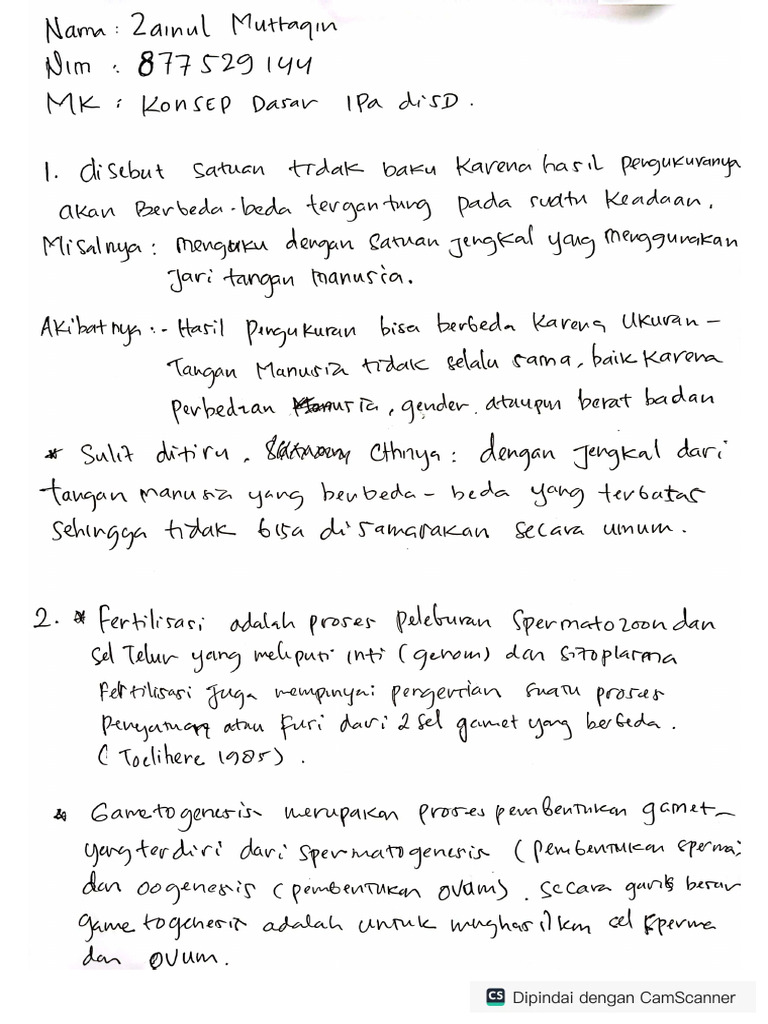 Nama : Zainul Muttaqin
Nim : 877529144
MK : KONSEP Dasar IPA diSD.
1. disebut satuan tidak baku karena hasil pengukuranya
akan Berbeda-beda tergantung pada suatu keadaan.
Misalnya : mengukur dengan satuan jengkal yang menggunakan
jari tangan manusia.
Akibatnya :- Hasil pengukuran bisa berbeda karena ukuran
Tangan Manusia tidak selalu sama, baik karena
perbedaan usia, gender, ataupun berat badan
* Sulit ditiru. Cthnya : dengan jengkal dari
tangan manusia yang berbeda-beda yang terbatas
sehingga tidak bisa disamarakan secara umum.
2. * Fertilisasi adalah proses peleburan Spermatozoon dan
sel Telur yang meliputi inti (genom) dan sitoplasma
Fertilisasi juga mempinyai pengertian suatu proses
penyatuan atau fusi dari 2 sel gamet yang berbeda.
(Toelihere 1985).
* Gametogenesis merupakan proses pembentukan gamet
yang terdiri dari spermatogenesis (pembentukan sperma)
dan oogenesis (pembentukan ovum). secara garis besar
gametogenesis adalah untuk menghasilkan sel sperma
dan ovum.
CS Dipindai dengan CamScanner